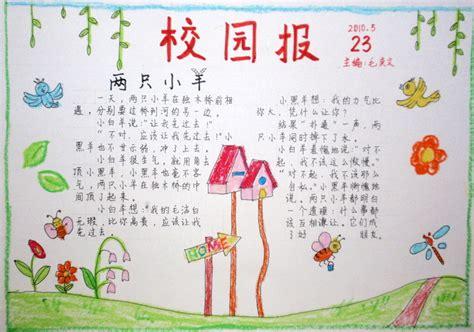 校园报
2010.5
23
主编:毛
两只小羊
一天，两只小羊在独木桥前相
遇，分别要过桥到河的另一边。
小白羊说:"让我先过去!"
"不，应该让我先过去!"小
黑羊也不甘示弱，冲了上来。
小白羊很生气，就用角
顶小黑羊，小黑羊也毫
两只小羊在独木桥的中
间顶了起来。
小白羊想:我的毛洁白
无瑕，比你高贵，应该让我
先过去。
小黑羊想:我的力气比
你大，凭什么让你?
结果"扑通"一声，两
只小羊同时掉下了水。
小白羊羞愧地说:"对不
起，我不该这么傲慢。"
"对不起，我不该那
自私。"小黑羊惭愧地
说。两只小羊都明白
一个道理:什么事都
该互相谦让。它们成
了好 朋友。
HOME